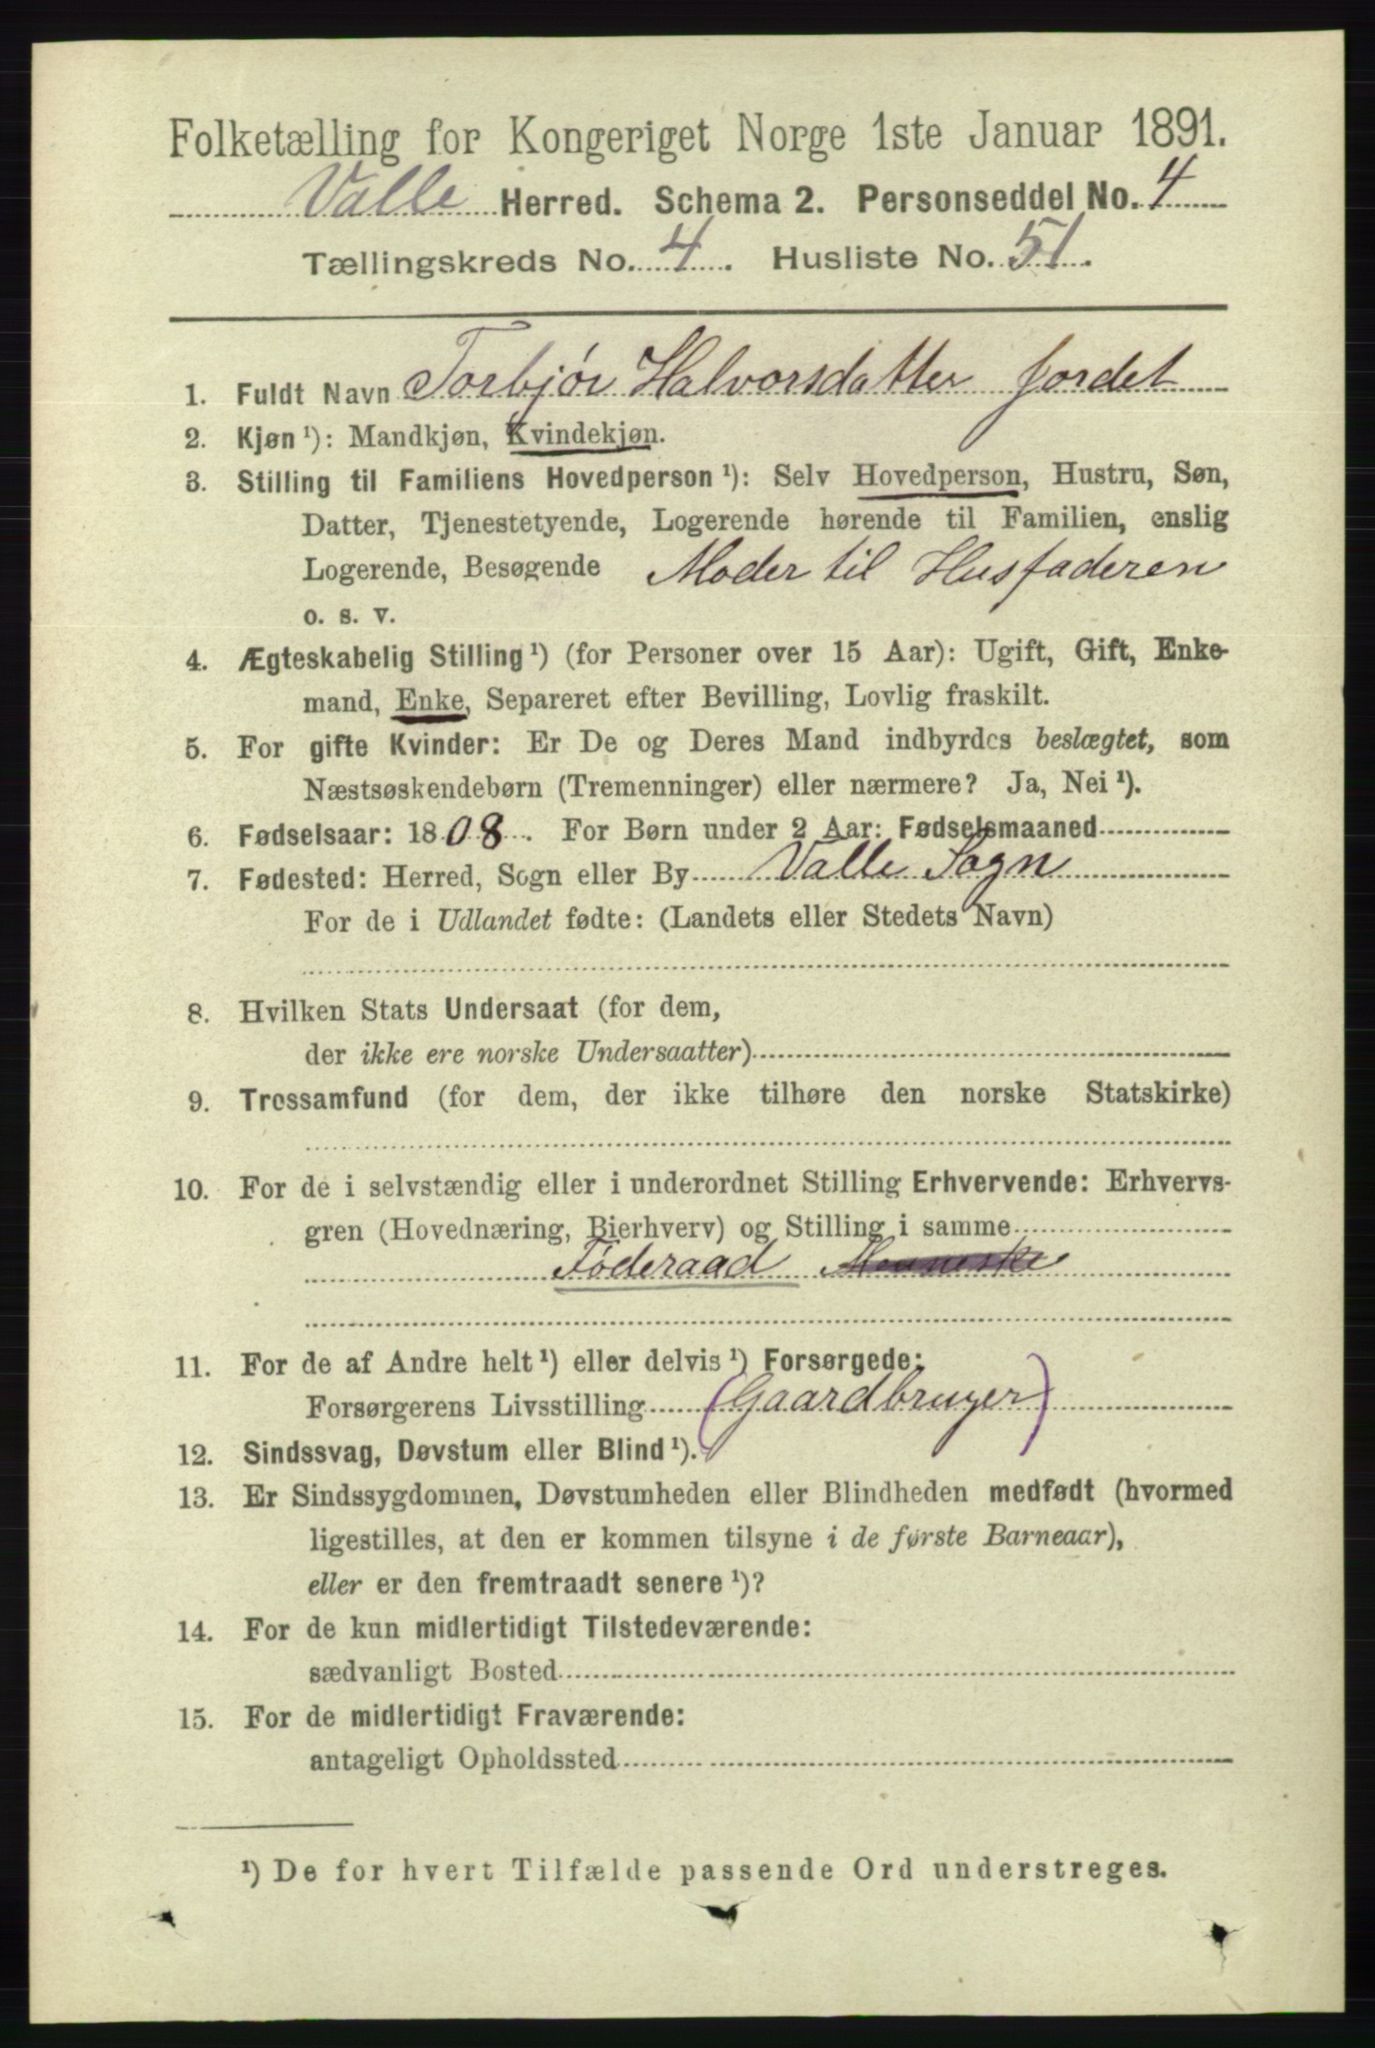 Folketælling for Kongeriget Norge 1ste Januar 1891.
Valle Herred. Schema 2. Personseddel No. 4
Tællingskreds No. 4. Husliste No. 51.
1. Fuldt Navn Torbjør Halvorsdatter jordet
2. Kjøn ¹): Mandkjøn, Kvindekjøn.
3. Stilling til Familiens Hovedperson ¹): Selv Hovedperson, Hustru, Søn,
Datter, Tjenestetyende, Logerende hørende til Familien, enslig
Logerende, Besøgende Moder til Husfaderen
o. s. v.
4. Ægteskabelig Stilling ¹) (for Personer over 15 Aar): Ugift, Gift, Enke-
mand, Enke, Separeret efter Bevilling, Lovlig fraskilt.
5. For gifte Kvinder: Er De og Deres Mand indbyrdes beslægtet, som
Næstsøskendebørn (Tremenninger) eller nærmere? Ja, Nei ¹).
6. Fødselsaar: 1808. For Børn under 2 Aar: Fødselsmaaned
7. Fødested: Herred, Sogn eller By Valle Sogn
For de i Udlandet fødte: (Landets eller Stedets Navn)
8. Hvilken Stats Undersaat (for dem,
der ikke ere norske Undersaatter)
9. Trossamfund (for dem, der ikke tilhøre den norske Statskirke)
10. For de i selvstændig eller i underordnet Stilling Erhvervende: Erhvervs-
gren (Hovednæring, Bierhverv) og Stilling i samme
Føderaad Menneske
11. For de af Andre helt ¹) eller delvis ¹) Forsørgede:
Forsørgerens Livsstilling (Gaardbruger)
12. Sindssvag, Døvstum eller Blind ¹).
13. Er Sindssygdommen, Døvstumheden eller Blindheden medfødt (hvormed
ligestilles, at den er kommen tilsyne i de første Barneaar),
eller er den fremtraadt senere ¹)?
14. For de kun midlertidigt Tilstedeværende:
sædvanligt Bosted
15. For de midlertidigt Fraværende:
antageligt Opholdssted
¹) De for hvert Tilfælde passende Ord understreges.